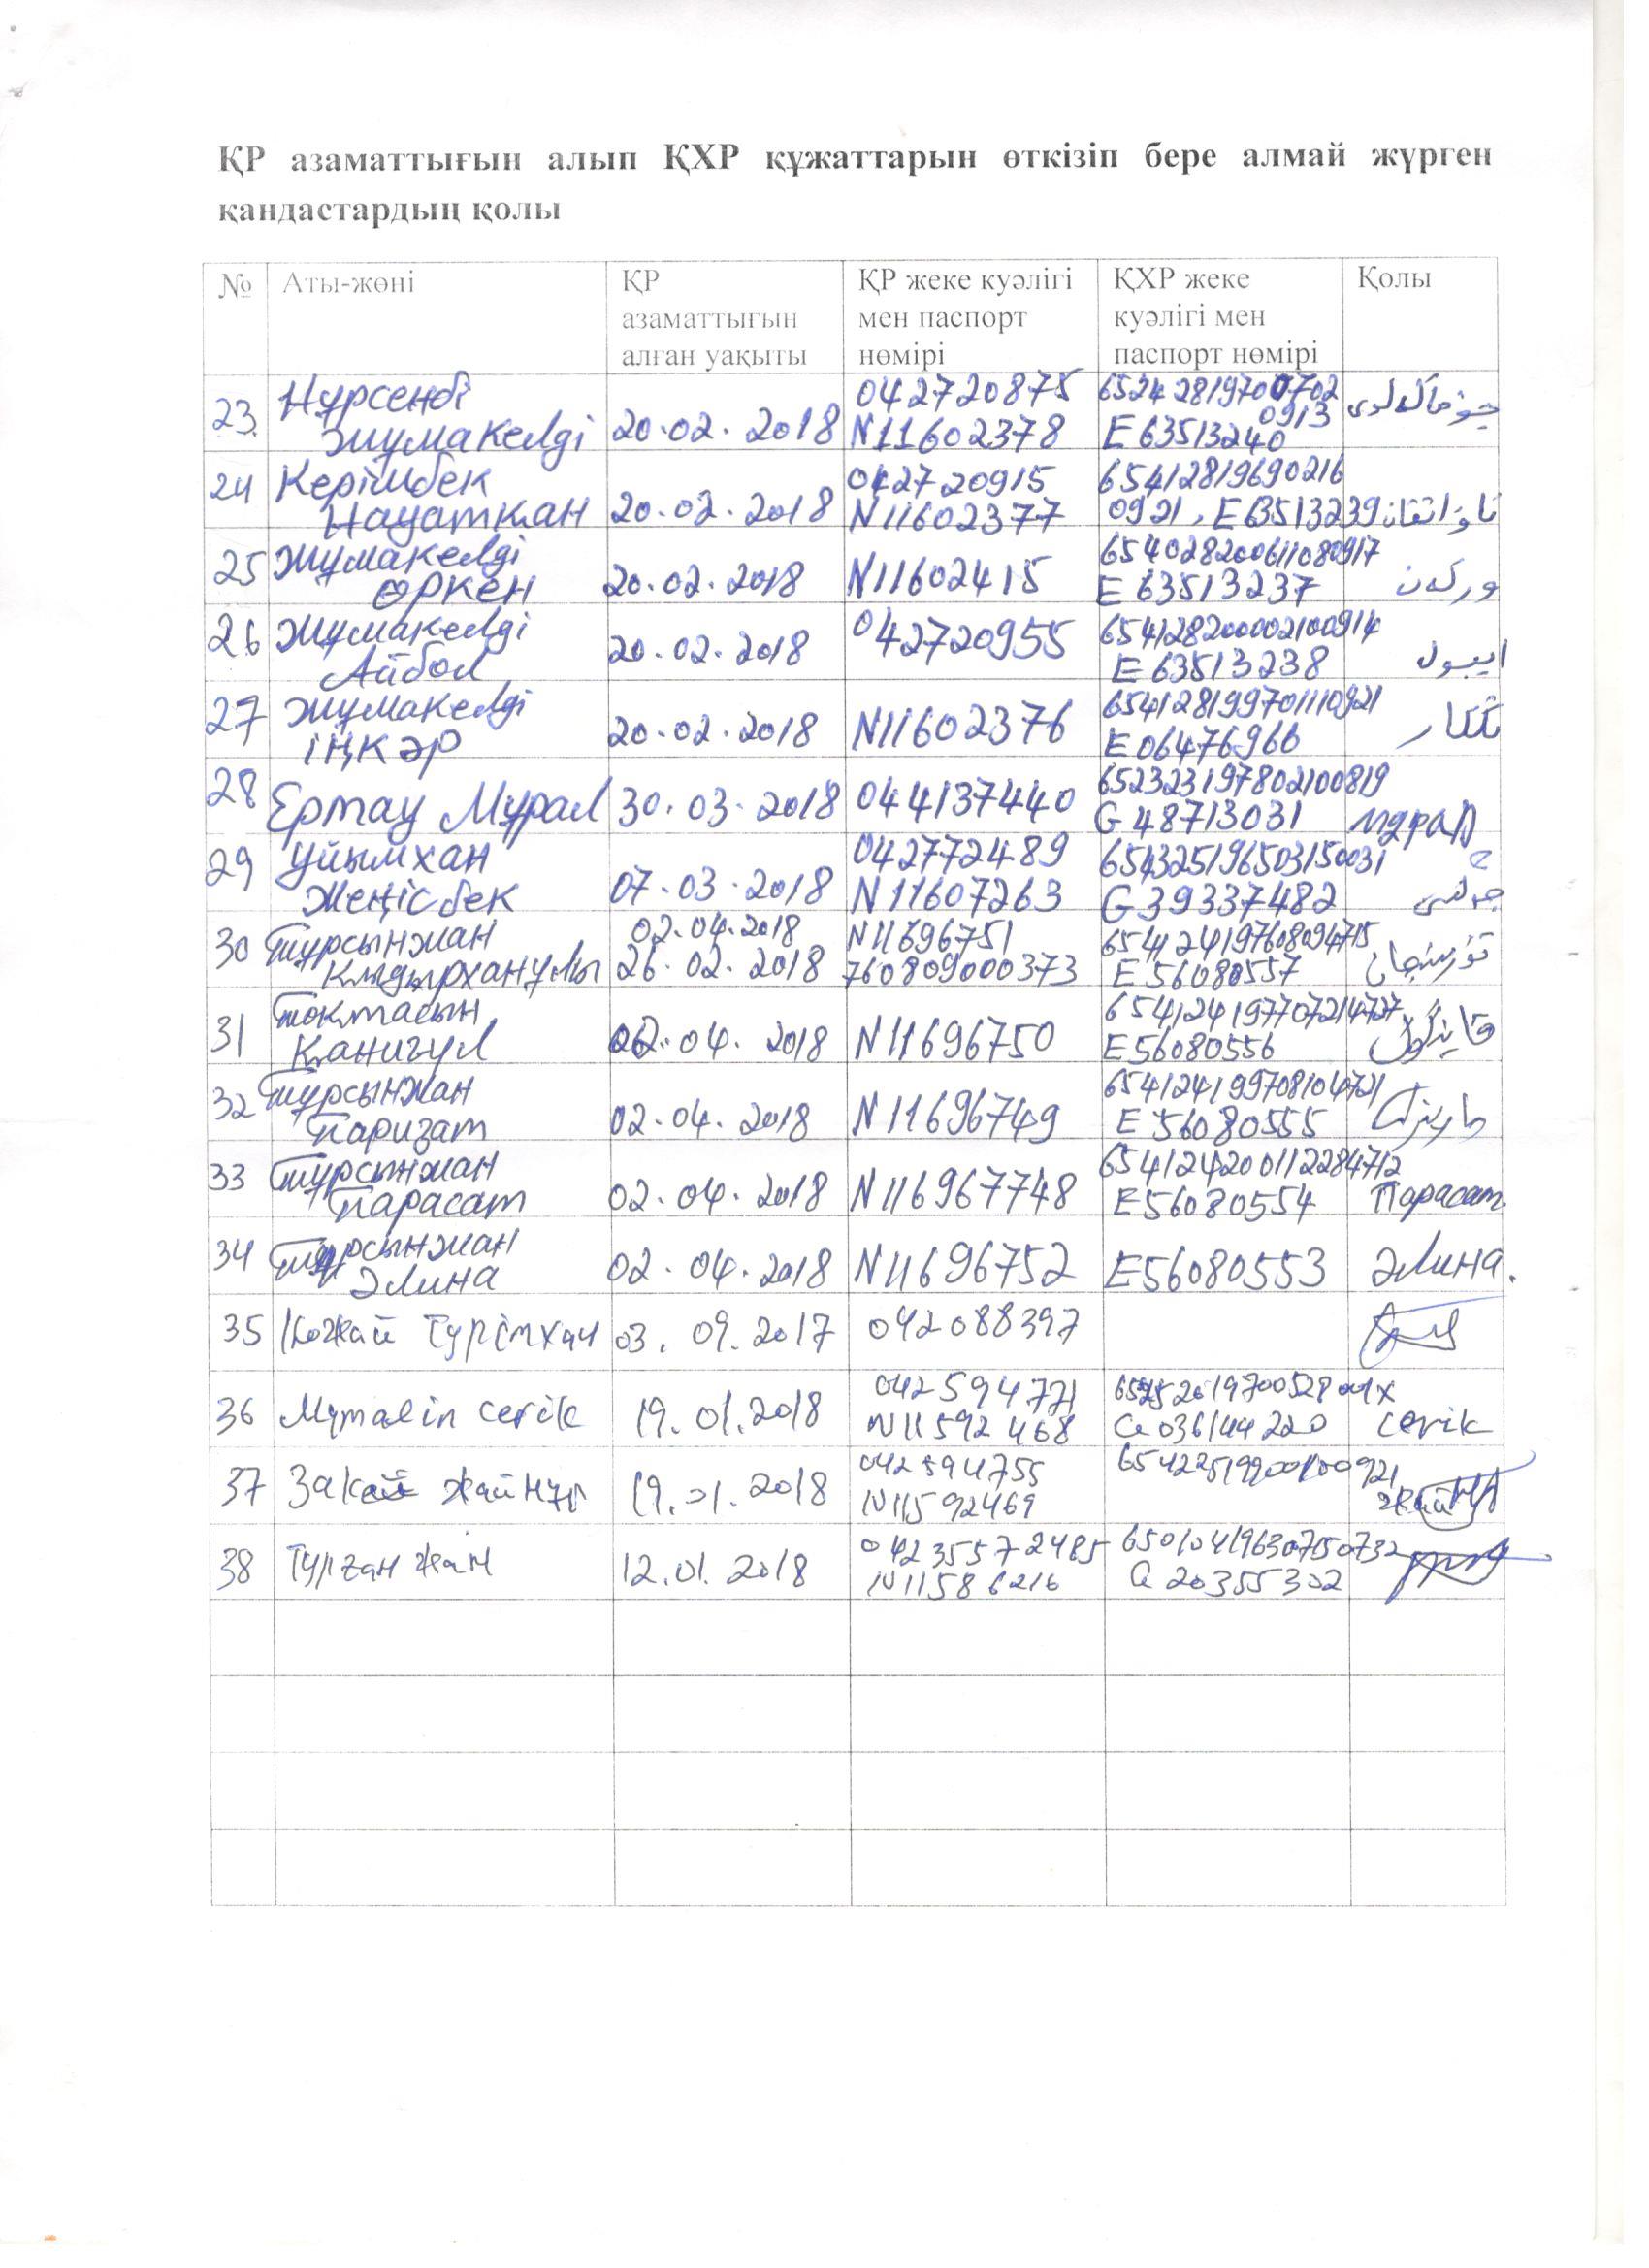 ҚР азаматтығын алып ҚХР құжаттарын өткізіп бере алмай жүрген
қандастардың қолы
№ Аты-жөні ҚР азаматтығын алған уақыты ҚР жеке куәлігі мен паспорт нөмірі ҚХР жеке куәлігі мен паспорт нөмірі Қолы
23. Нұрсенбі Жұмакелді 20.02.2018 042720875 N11602378 0913 E63513240
24 Керімбек Науатқан 20.02.2018 042720915 N11602377 654128196902160921, E63513239 ناۋاتقان
25 Жұмакелді Өркен 20.02.2018 N11602415 654028200611080917 E63513237 وركەن
26 Жұмакелді Айбол 20.02.2018 042720955 654128200002100914 E63513238 ايبول
27 Жұмакелді Іңкәр 20.02.2018 N11602376 654128199701110921 E06476966
28 Ертау Мұрал 30.03.2018 044137440 652323197802100819 G48713031
29 Ұйымхан Жеңісбек 07.03.2018 042772489 N11607263 654325196503150031 G39337482
30 Тұрсынжан Қыдырханұлы 02.04.2018 26.02.2018 N11696751 760809000373 654124197608094715 E56080557 تۇرسىنجان
31 Тоқтасын Қанигүл 02.04.2018 N11696750 654124197707214727 E56080556
32 Тұрсынжан Паризат 02.04.2018 N11696749 654124199708104721 E56080555
33 Тұрсынжан Парасат 02.04.2018 N116967748 654124200112284712 E56080554 Парасат.
34 Тұрсынжан Әлина 02.04.2018 N11696752 E56080553 Әлина.
35 Қожай Тұрімхан 03.09.2017 042088397
36 Mұmalin cerik 19.01.2018 042594771 N11592468 G036144220 cerik
37 Закей Жайнұр 19.01.2018 042594755 N11592469
38 Тұрған Жан 12.01.2018 04235572485 N11586216 650104196307150732 G20355302